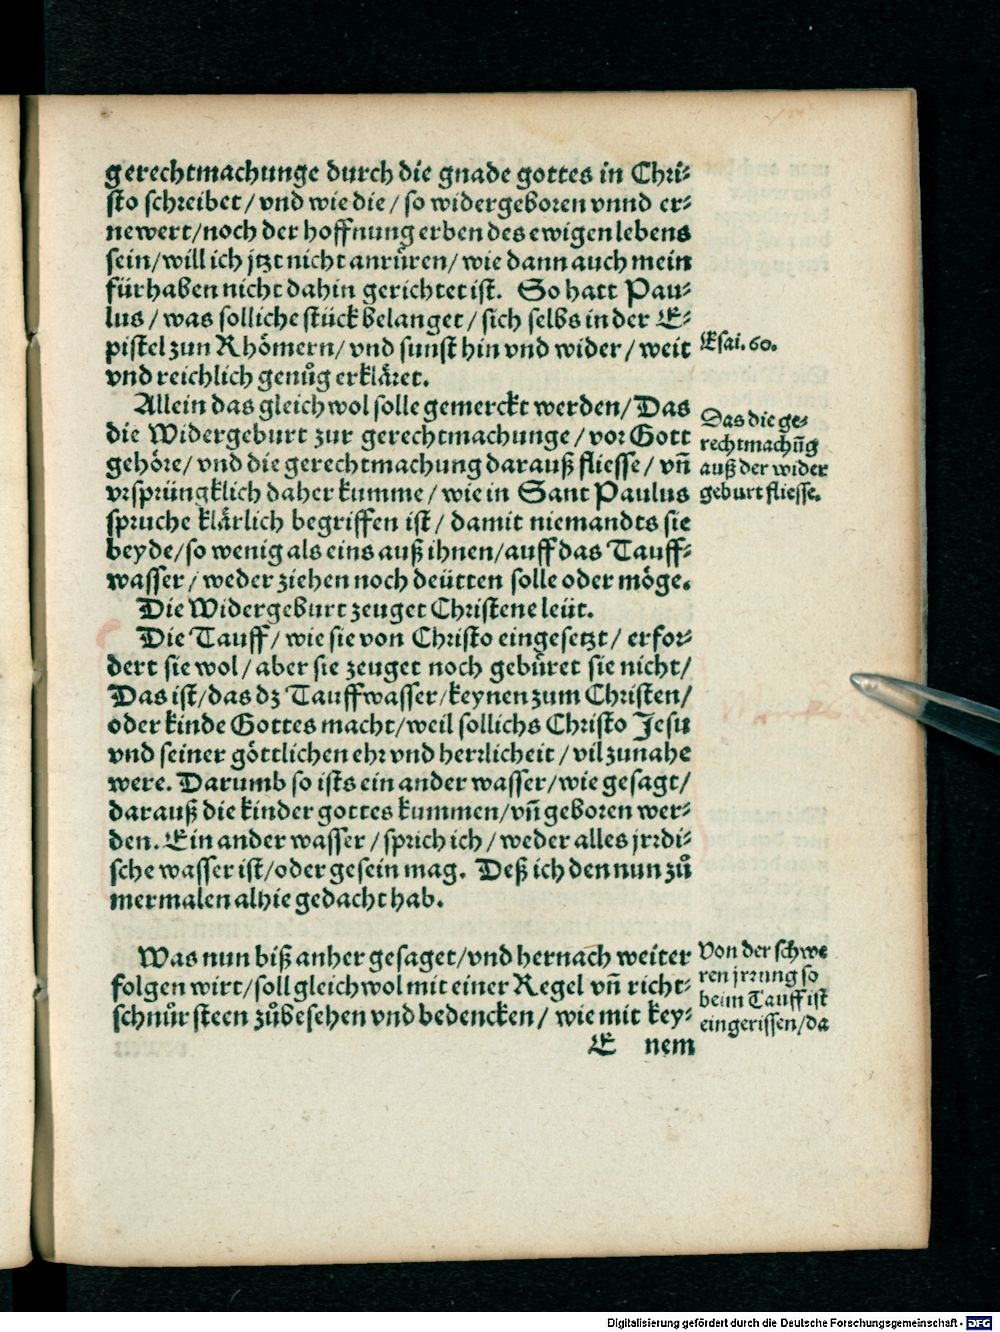 gerechtmachunge durch die gnade gottes in Chri⸗
sto schreibet / vnd wie die / so widergeboren vnnd er⸗
newert / noch der hoffnung erben des ewigen lebens
sein / will ich jtzt nicht anruͤren / wie dann auch mein
fürhaben nicht dahin gerichtet ist. So hatt Pau⸗
lus / was solliche stück belanget / sich selbs in der E⸗
pistel zun Rhoͤmern / vnd sunst hin vnd wider / weit
vnd reichlich genuͦg erklaͤret.
Allein das gleichwol solle gemerckt werden / Das
die Widergeburt zur gerechtmachunge / vor Gott
gehoͤre / vnd die gerechtmachung darauß fliesse / vñ
vrsprüngklich daher kumme / wie in Sant Paulus
spruche klaͤrlich begriffen ist / damit niemandts sie
beyde / so wenig als eins auß ihnen / auff das Tauff⸗
wasser / weder ziehen noch deütten solle oder moͤge.
Die Widergeburt zeuget Christene leüt.
Die Tauff / wie sie von Christo eingesetzt / erfor⸗
dert sie wol / aber sie zeuget noch gebuͤret sie nicht /
Das ist / das dz Tauffwasser / keynen zum Christen /
oder kinde Gottes macht / weil sollichs Christo Jesu
vnd seiner goͤttlichen ehr vnd herrlicheit / vil zunahe
were. Darumb so ists ein ander wasser / wie gesagt /
darauß die kinder gottes kummen / vñ geboren wer⸗
den. Ein ander wasser / sprich ich / weder alles jrrdi⸗
sche wasser ist / oder gesein mag. Deß ich den nun zuͦ
mermalen alhie gedacht hab.
Was nun biß anher gesaget / vnd hernach weiter
folgen wirt / soll gleichwol mit einer Regel vñ richt⸗
schnuͦr steen zuͦbesehen vnd bedencken / wie mit key⸗
E nem
Esai. 60.
Das die ge⸗
rechtmachũg
auß der wider
geburt fliesse.
Von der schwe
ren jrrung so
beim Tauff ist
eingerissen / da
Digitalisierung gefördert durch die Deutsche Forschungsgemeinschaft - DFG